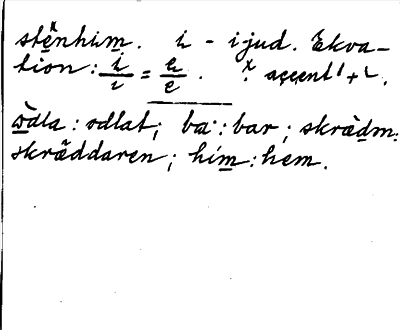 stẽnhim. i - ijud. Ekva-
tion: i/i = e/e. ˣ accent ˈ + ˋ.
òdla: odlat; ba: bar; skrädm:
skräddaren; him: hem.